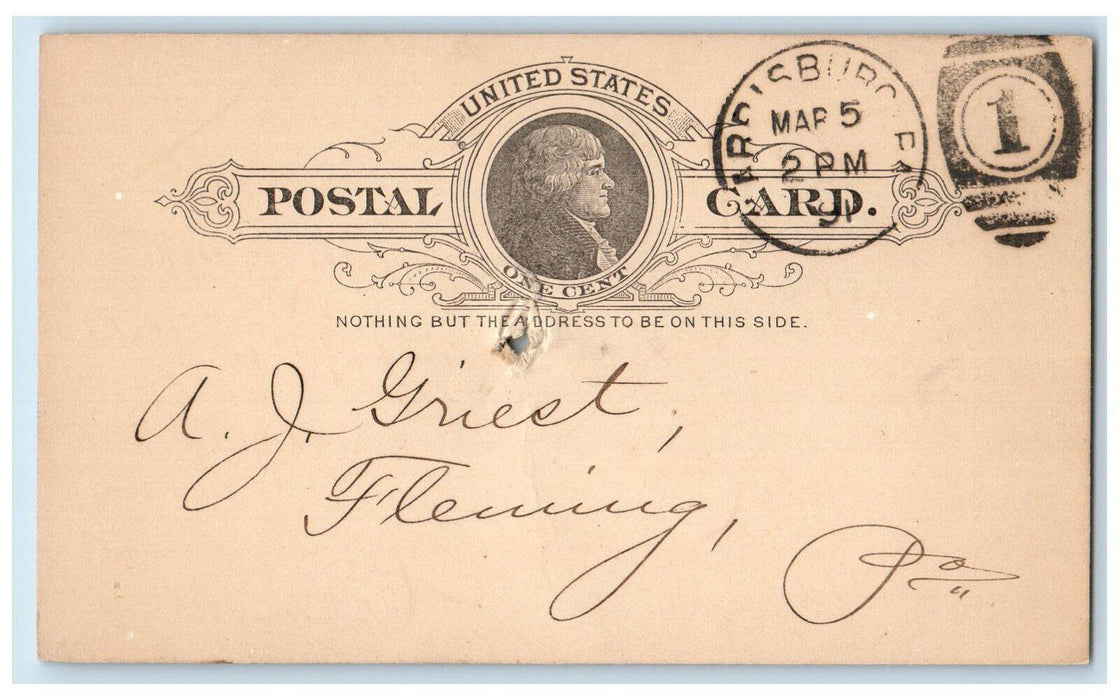 UNITED STATES
POSTAL CARD.
ONE CENT
NOTHING BUT THE ADDRESS TO BE ON THIS SIDE.
ARRISBURG PA
MAR 5
2 PM
91
1
A. J. Griest,
Fleming,
Pa